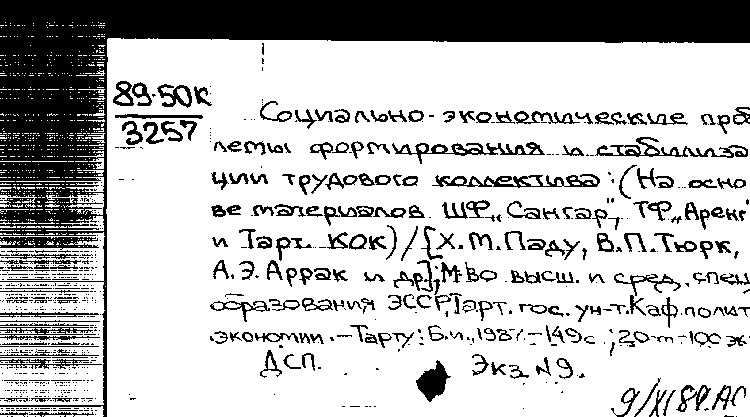 89-50К
3257
Социально-экономические проб
лемы формирования и стабилиза
ции трудового коллектива: (На осно
ве материалов ШФ „Сангар", ТФ „Аренг"
и Тарт. КОК) / [Х.М.Паду, В.П.Тюрк,
А.Э.Аррак и др.]; М-во высш. и сред. спец.
образования ЭССР, Тарт. гос. ун-т. Каф. полит
экономии. – Тарту: Б.и., 1987. – 149с.; 20 т – 100 эк
ДСП. Экз. №9.